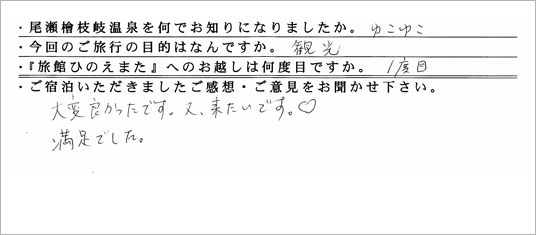 ・尾瀬檜枝岐温泉を何でお知りになりましたか。 ゆこゆこ
・今回のご旅行の目的はなんですか。 観光
・『旅館ひのえまた』へのお越しは何度目ですか。 1度目
・ご宿泊いただきましたご感想・ご意見をお聞かせ下さい。
大変良かったです。又、来たいです。♡
満足でした。